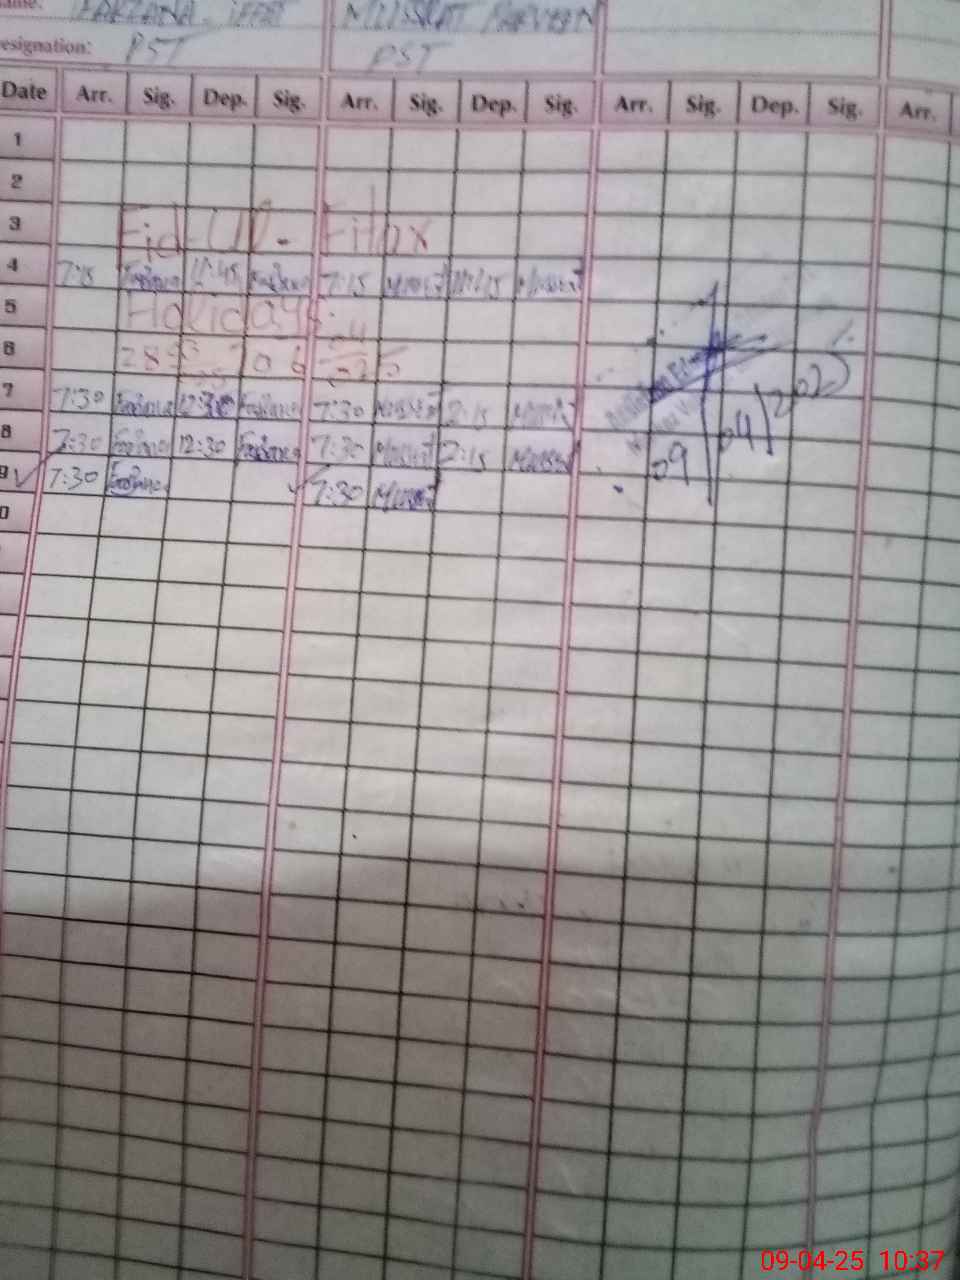 Name: FARZANA MUSSRAT PARVEEN
Designation: PST PST
Date Arr. Sig. Dep. Sig. Arr. Sig. Dep. Sig. Arr. Sig. Dep. Sig. Arr.
1
2
3 Eid-Ul-Fitox
4 7:15 Farzana 11:45 Farzana 7:15 Mussrat 11:15 Mussrat
5 Holidays
6 28 to 6
7 7:30 Farzana Farzana 7:30 Mussrat 2:15 Mussrat
8 7:30 Farzana 12:30 Farzana 7:30 Mussrat 2:15 Mussrat
9 7:30 Farzana 7:30 Mussrat
09/04/2025
09-04-25 10:37